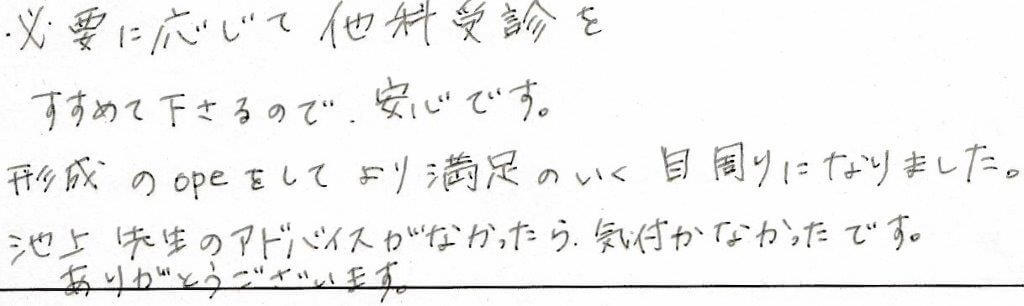 ・必要に応じて他科受診を
すすめて下さるので、安心です。
形成のopeをしてより満足のいく目周りになりました。
池上先生のアドバイスがなかったら、気付かなかったです。
ありがとうございます。